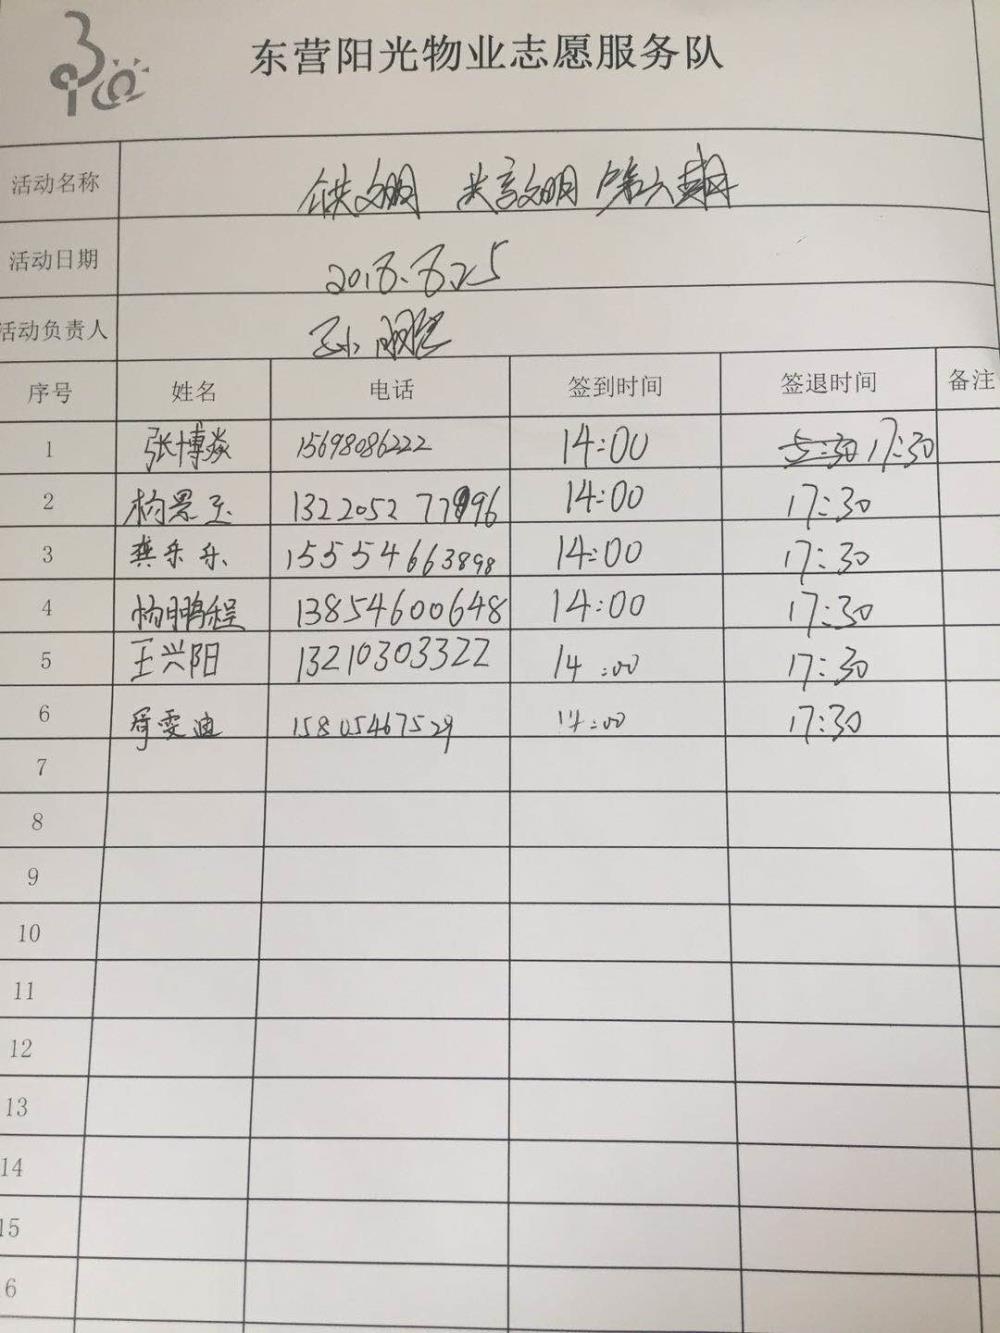 东营阳光物业志愿服务队
活动名称 文明 共享文明 第六期
活动日期 2018.8.25
活动负责人 孙鹏程
序号 姓名 电话 签到时间 签退时间 备注
1 张博焱 15698086222 14:00 5:30 17:30
2 杨景玉 1322052 77996 14:00 17:30
3 龚乐乐 15554663898 14:00 17:30
4 杨鹏程 13854600648 14:00 17:30
5 王兴阳 13210303322 14:00 17:30
6 胥雯迪 15805467529 14:00 17:30
7
8
9
10
11
12
13
14
15
6